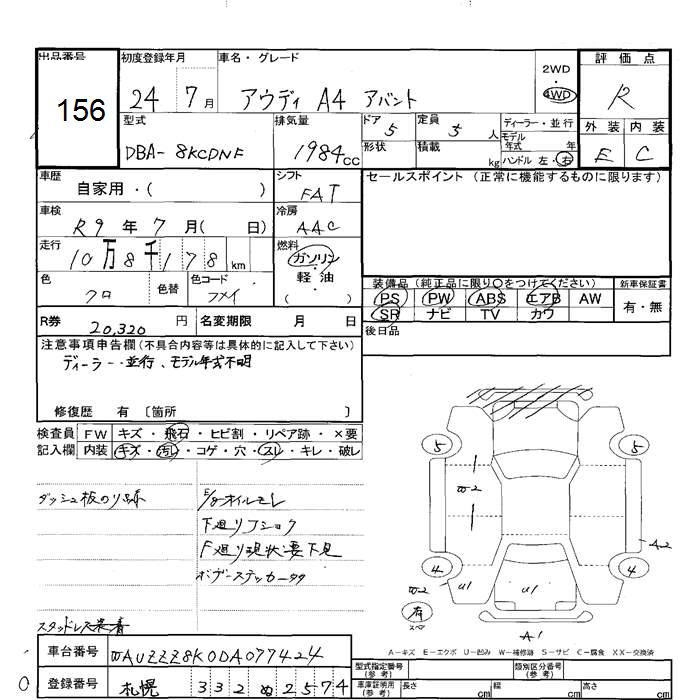 出品番号
156
初度登録年月
24 7月
車名・グレード
アウディ A4 アバント
2WD
・
4WD
評価点
R
外装 内装
E C
型式
DBA-8KCDNF
排気量
1984cc
ドア 5
形状
定員 5人
積載 kg
ディーラー・並行
モデル年式 年
ハンドル 左・右
車歴
自家用・( )
シフト
FAT
車検
R9年7月( 日)
冷房
AAC
走行
10万8千178km
燃料
ガソリン
軽油
( ・ )
色
クロ
色替
色コード
フメイ
セールスポイント (正常に機能するものに限ります)
装備品 (純正品に限り○をつけてください)
PS PW ABS エアB AW
SR ナビ TV カワ
新車保証書
有・無
後日品
R券 20,320円
名変期限 月 日
注意事項申告欄(不具合内容等は具体的に記入して下さい)
ディーラー・並行、モデル年式不明
修復歴 有 〔箇所 〕
検査員 FW キズ・飛石・ヒビ割・リペア跡・×要
記入欄 内装 キズ・汚れ・コゲ・穴・スレ・キレ・破レ
ダッシュ板のり跡
スタッドレス装着
E/gオイルモレ
下廻りフショク
F廻り現状要下見
ボデーステッカータタ
5 5
W2
A2
4 4
W2 U1 U1
有
スペア
A1
A-キズ E-エクボ U-凹み W-補修跡 S-サビ C-腐食 XX-交換済
車台番号 WAUZZZ8K0DA077424
登録番号 札幌 332 ぬ 2574
0
型式指定番号(参考)
類別区分番号(参考)
車庫証明用(参考) 長さ cm 幅 cm 高さ cm